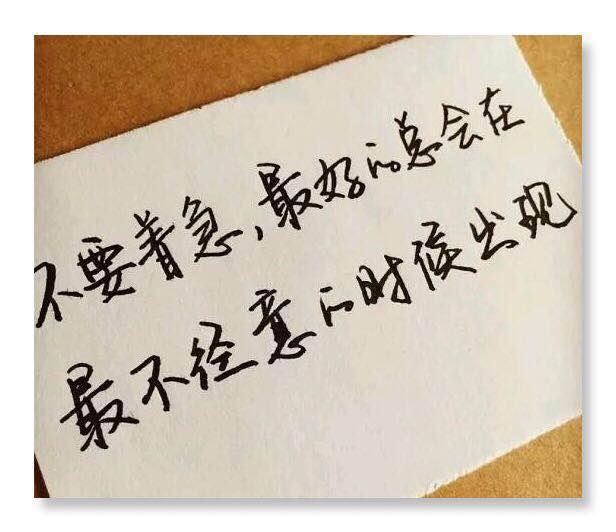 不要着急,最好的总会在
最不经意的时候出现